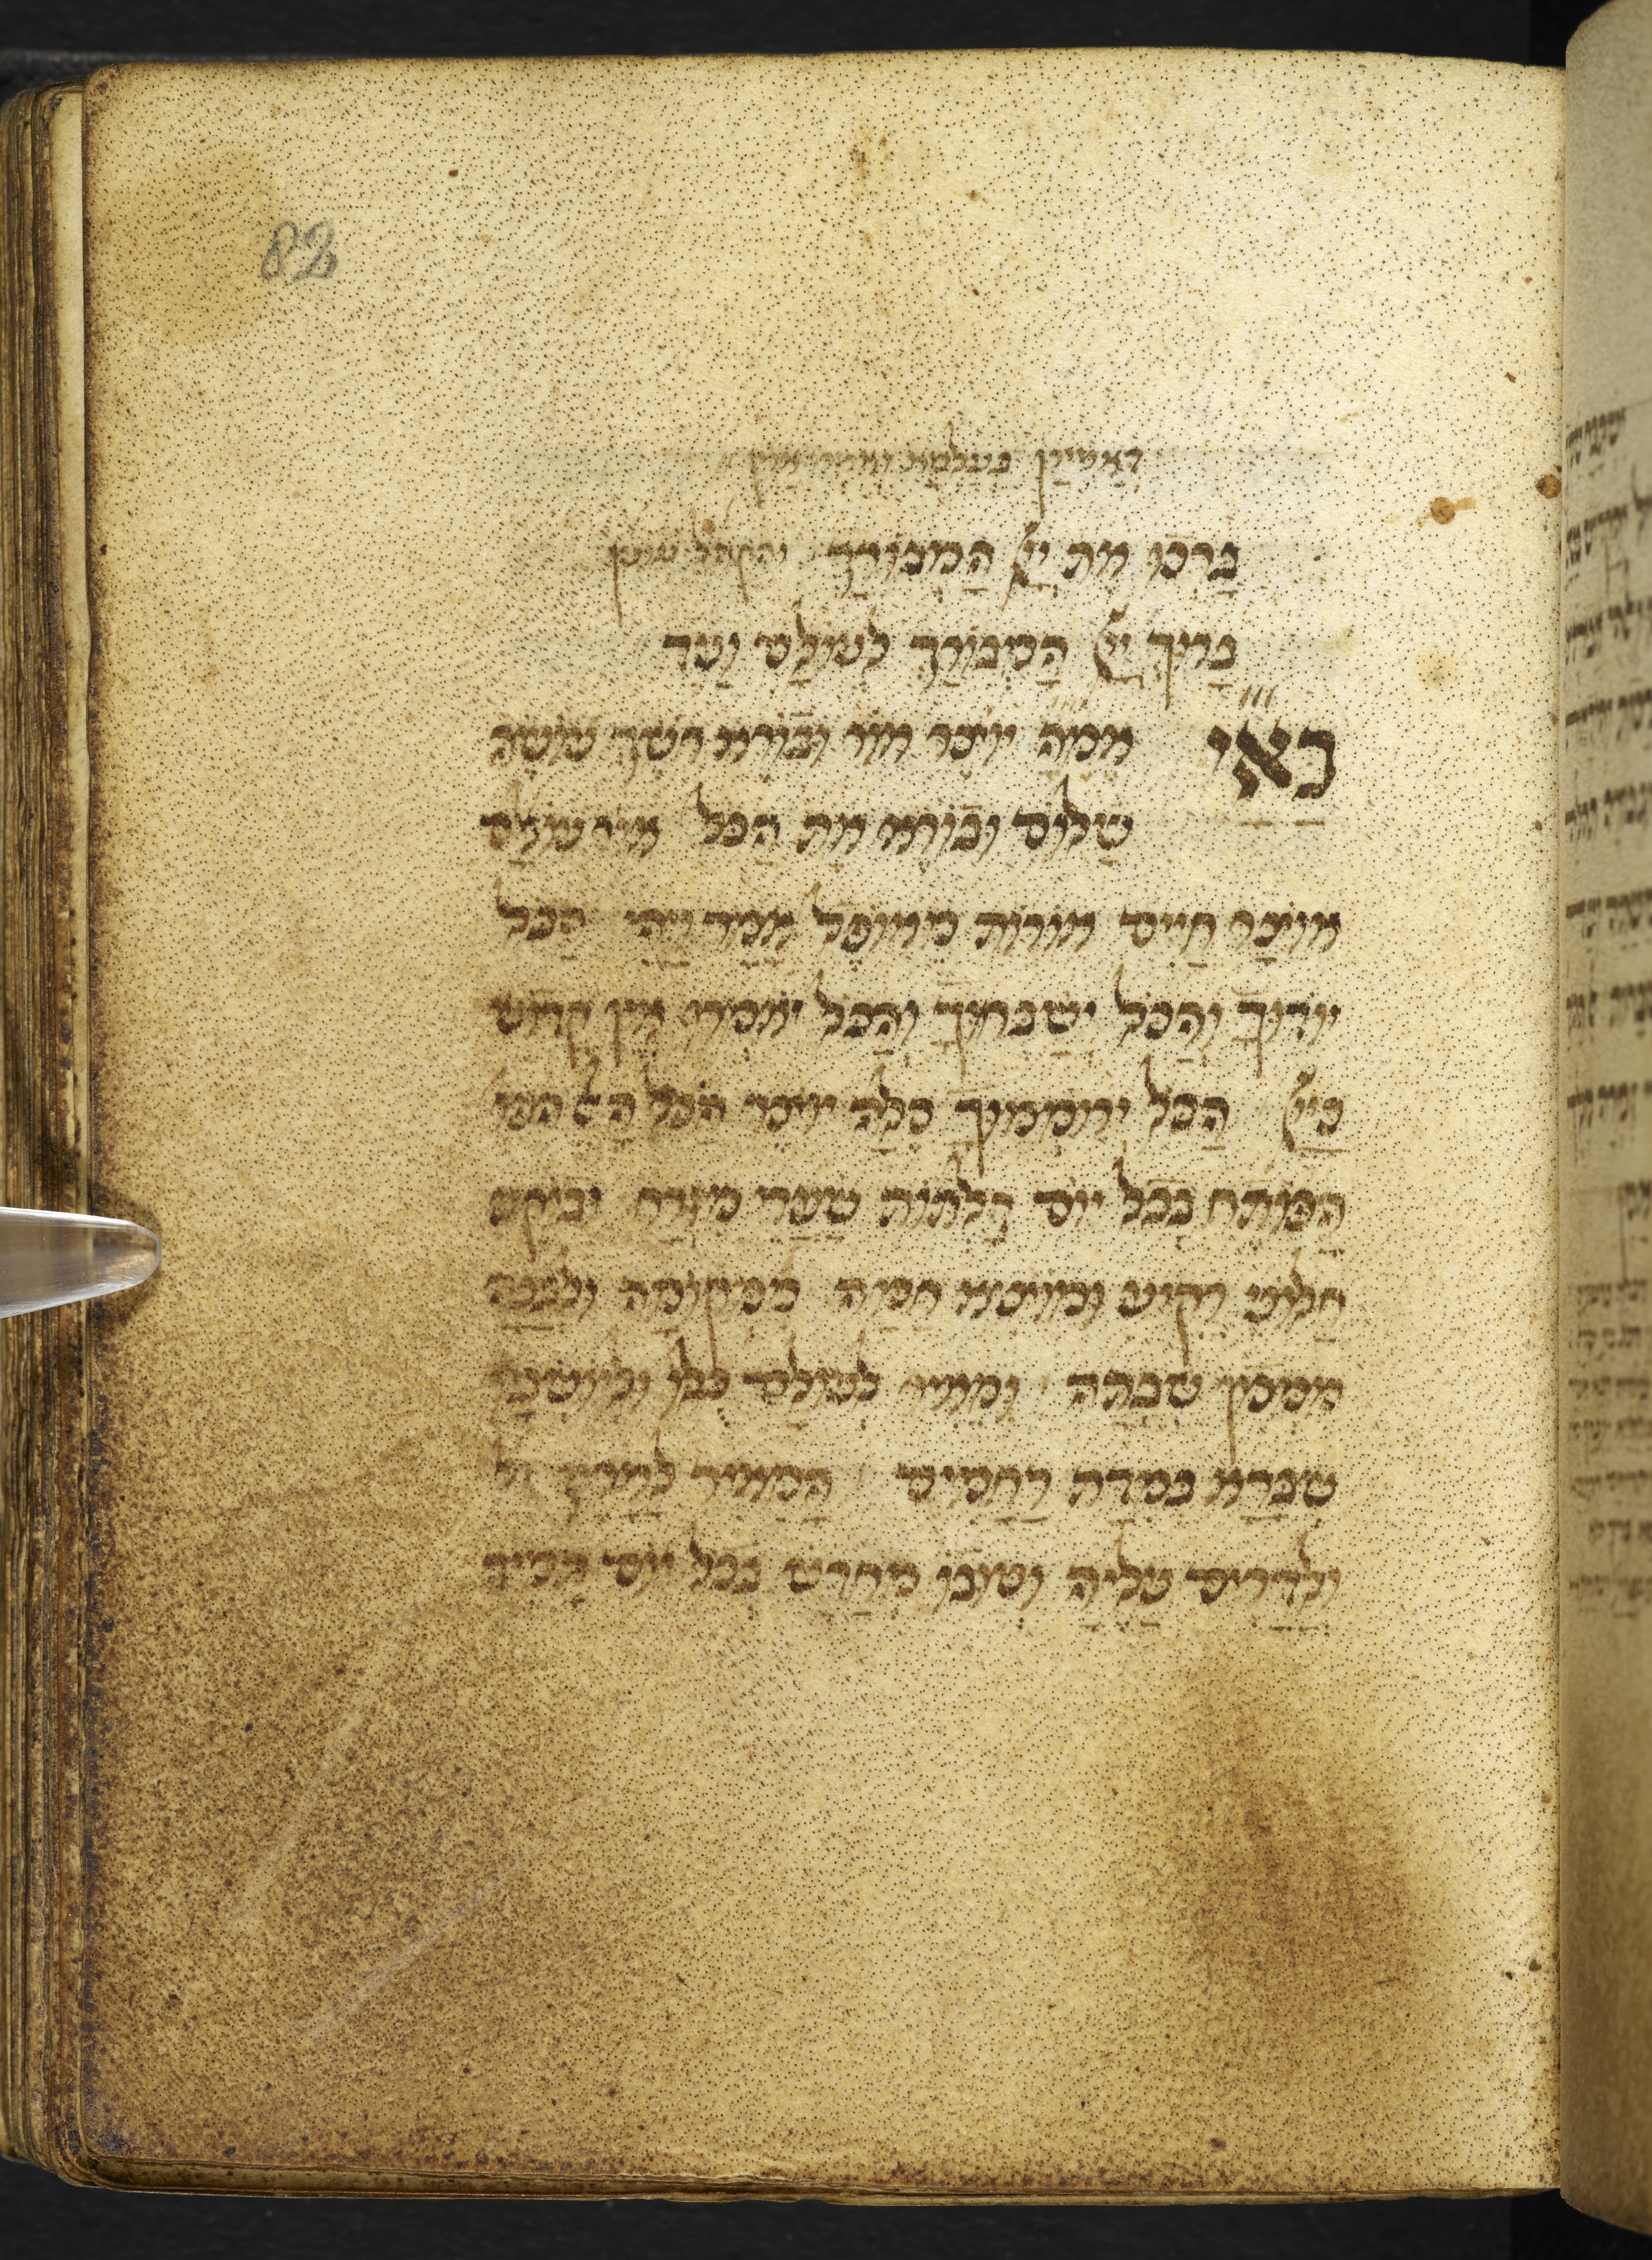 82
דאמירן בעלמא ואמרו אמן
בָּרְכוּ אֶת יְיָ הַמְבוֹרָךְ והקהל עונין
בָּרוּךְ יְיָ הַמְבוֹרָךְ לְעוֹלָם וָעֶד
בָּאַ״יְ אמ״ה יוֹצֵר אוֹר וּבוֹרֵא חשֶׁךְ עוֹשֶׂה
שָׁלוֹם וּבוֹרֵא אֶת הַכֹּל אור עוֹלָם
אוֹצַר חַיִּים אוֹרוֹת מֵאוֹפֶל אָמַר וַיֶּהִי הַכֹּל
יוֹדוּךָ וְהַכֹּל יְשַׁבְּחוּךָ וְהַכֹּל יֹאמְרוּ אֵין קָדוֹשׁ
כַּיְיָ הַכֹּל יְרוֹמְמוּךָ סֶלָה יוֹצֵר הַכֹּל הָאֵל
הַפּוֹתֵחַ בְּכָל יוֹם דַּלְתוֹת שַׁעֲרֵי מִזְרָח וּבוֹקֵעַ
חַלּוֹנֵי רָקִיעַ וּמוֹצִיא חַמָּה מִמְּקוֹמָהּ וּלְבָנָה
מִמְּכוֹן שִׁבְתָּהּ וּמֵאִיר לְעוֹלָם כֻּלּוֹ וּלְיוֹשְׁבָיו
שֶׁבָּרָא בְּמִדַּת רַחֲמִים הַמֵּאִיר לָאָרֶץ
וְלַדָּרִים עָלֶיהָ וְטוּבוֹ מְחַדֵּשׁ בְּכָל יוֹם תָּמִיד